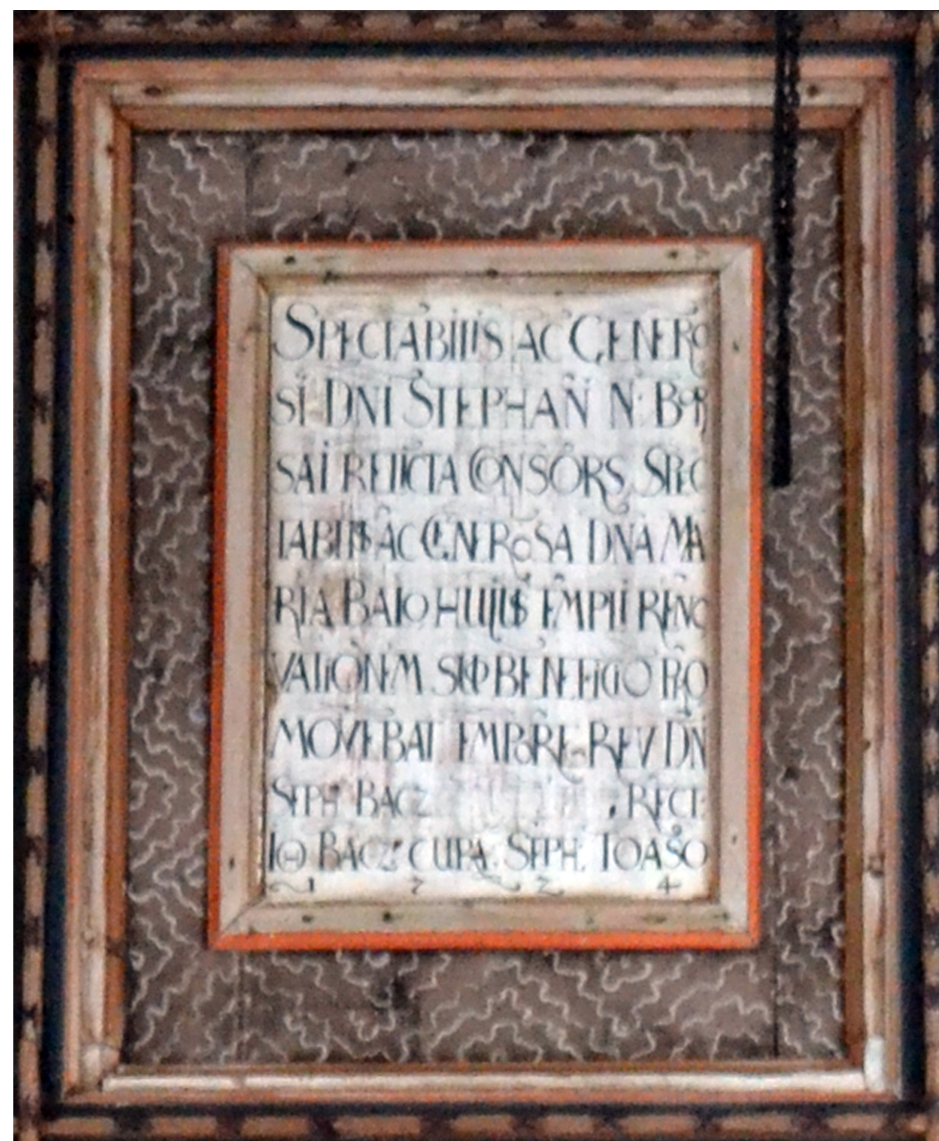 SPECTABILIS AC GENERO
SI DNI STEPHAN N. BOR
SAI RELICTA CONSORS SPEC
TABILIS AC GENEROSA DNA MA
RIA BAIO HUJUS TEMPLI RENO
VATIONEM SUO BENEFICIO PRO
MOVEBAT TEMPORE REV DN
STEPH BACZ RECT
IOH BACZ CURA STEPH TOASO
1 7 2 4